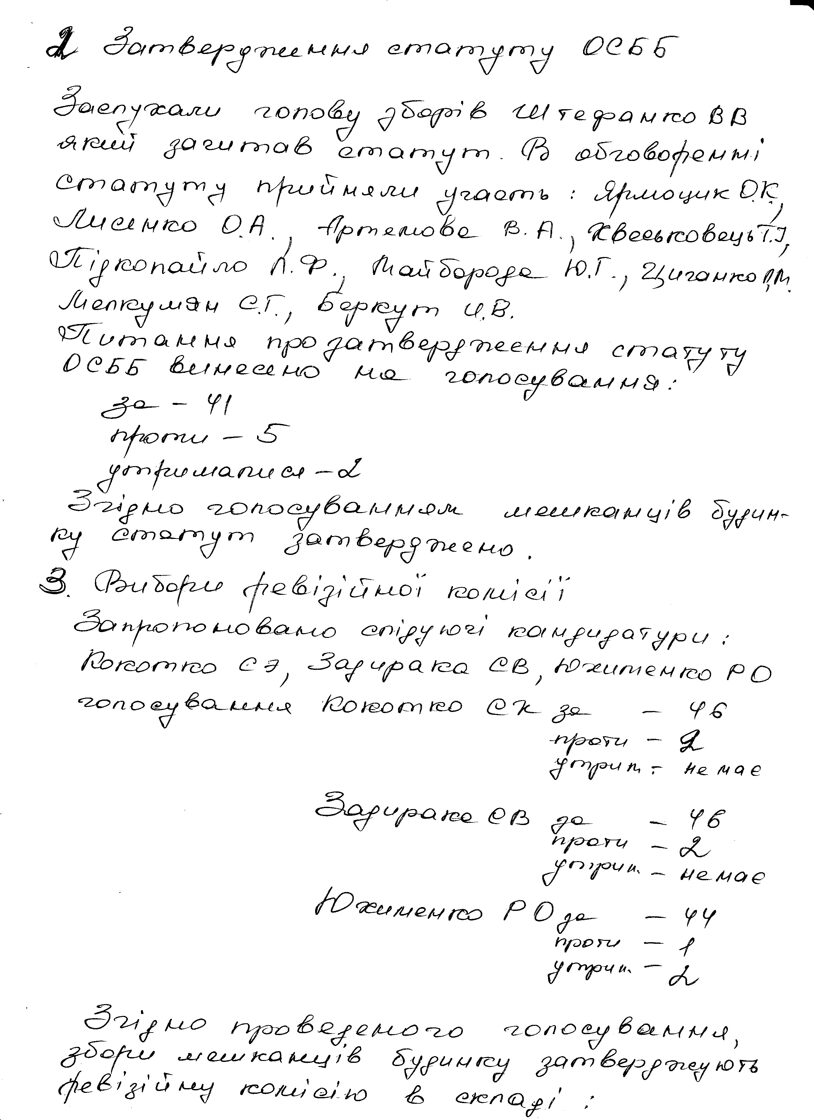 2 Затвердження статуту ОСББ
Заслухали голову зборів Штефанко ВВ
який зачитав статут. В обговоренні
статуту прийняли участь: Ярмоцик О.К,
Лисенко О.А., Артемова В.А., Хвеськовець Т.І,
Підкопайло Л.Ф., Майборода Ю.Г., Циганко
Мелкумян С.Г., Беркут И.В.
Питання про затвердження статуту
ОСББ винесено на голосування:
за - 41
проти - 5
утрималися - 2
Згідно голосуванням мешканців будин-
ку статут затверджено.
3. Вибори ревізійної комісії
Запропоновано слідуючі кандидатури:
Кокотко С Э, Задирака СВ, Юхименко РО
голосування Кокотко СК за - 46
проти - 2
утрим. - немає
Задирака СВ за - 46
проти - 2
утрим. - немає
Юхименко РО за - 44
проти - 1
утрим. - 2
Згідно проведеного голосування,
збори мешканців будинку затверджують
ревізійну комісію в складі: